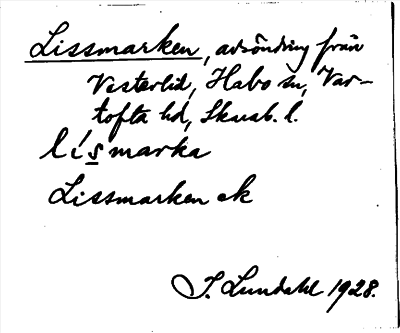 Lissmarken, avsöndring från
Västerlid, Habo sn, Var-
tofta hd, Skarab. l.
lísmarka
Lissmarken ek
I. Lundahl 1928.